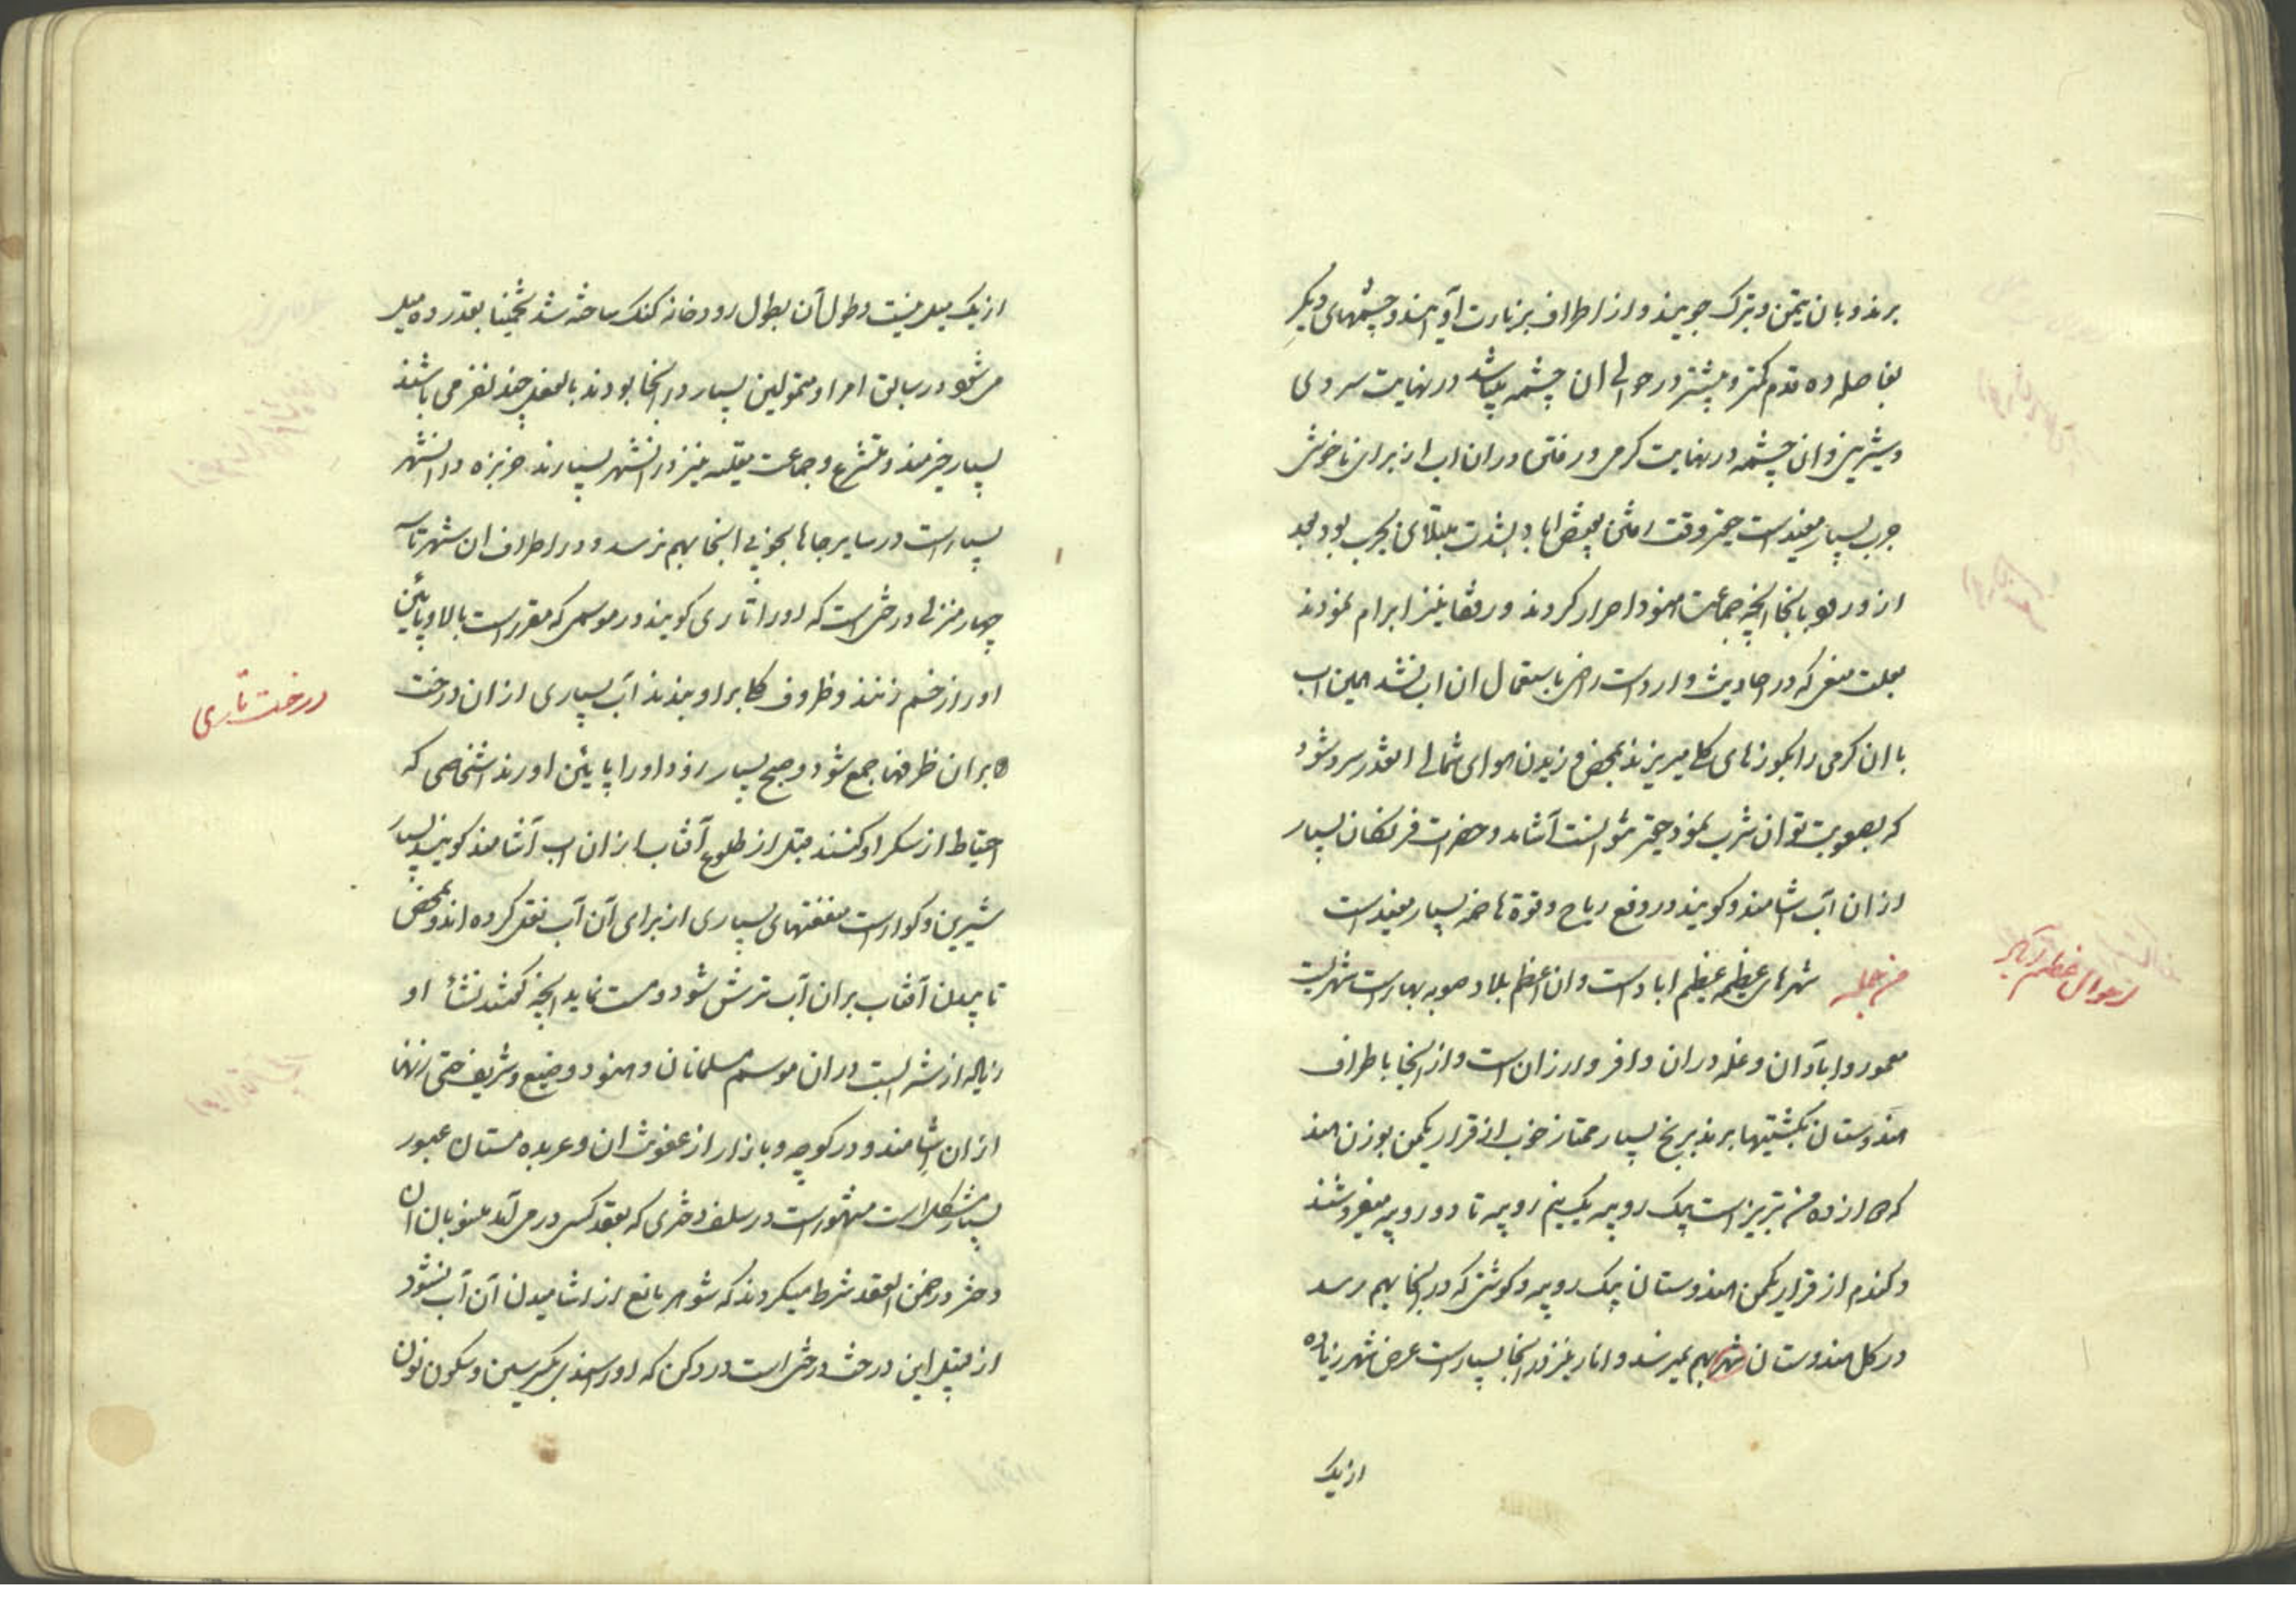 برند و بان تیمن و تبرک جویند و از اطراف بزیارت او آیند و چشمهای دیگر
بفاصله ده قدم کمتر و بیشتر در حوالی ان چشمه میباشد در نهایت سردی
و شیرینی و ان چشمه در نهایت کرمی و رفتن در ان اب از برای ناخوشی
جرب بسیار مفید است حقیر وقت رفتن بعضی اباد بشدت مبتلای بجرب بود بعد
از ورود بانجا انچه جماعت هنود اصرار کردند و رفقا نیز ابرام نمودند
بعلت منعی که در احادیث وارد است راضی باستعمال ان اب نشد همین اب
با ان کرمی را بکوزهای کلی میریزند بمحض وزیدن هوای شمالی انقدر سرد شود
که بصعوبت توان شرب نمود حقیر نتوانست آشامد و حضرات فرنکان بسیار
از ان آب آشامند و کویند در دفع ریاح و قوة هاضمه بسیار مفید است
من جمله شهرهای عظیمه عظیم اباد است و ان اعظم بلاد صوبه بهار است شهریست
احوال عظیم آباد
معمور و ابادان و غله در ان وافر و ارزان است و از انجا باطراف
هندوستان بکشتیها برند برنج بسیار ممتاز خوب از قرار یکمن بوزن هند
که ده من تبریز است بیک روپیه یک نیم روپیه تا دو روپیه میفروشند
و کندم از قرار یکمن هندوستان بیک روپیه و کوشتی که در انجا بهم رسد
در کل هندوستان شهر بهم نمیرسد و انار نیز در انجا بسیار است عرض شهر زیاده
از یک
از یک میل نیست و طول آن بطول رودخانه کنک ساخته شد تخمینا بقدر ده میل
می شود در سابق امرا و متمولین بسیار در انجا بودند بالفعل چند نفر می باشند
بسیار خیرمند و متشرع و جماعت نیز در انشهر بسیارند خربزه در انشهر
بسیار است در سایر جاها بخوبی انجا بهم نرسد و در اطراف ان شهر تا سه
چهار منزلی درختی است که او را تاری کویند در موسمی که مقرر است بالا و پائین
او را زخم زنند و ظروف کلی بر او بندند آب بسیاری از ان درخت
درخت تاری
بر ان ظرفها جمع شود و صبح بسیار زود او را پایئن اورند اشخاصی که
احتیاط از سکر او کنند قبل از طلوع آفتاب از ان اب آشامند کویند بسیار
شیرین و کوارا است منفعتهای بسیاری از برای آن آب نقل کرده اند و بمحض
تابیدن آفتاب بر ان آب ترش شود و مست نماید انچه کفتند نشأ او
زیاله از نشه است در ان موسم مسلمانان و هنود وضیع و شریف حتی زنها
از ان اشامند و در کوچه و بازار از عفونت ان و عربده مستان عبور
بسیار مشکل است مشهور است در سلف دختری که بعقد کسی در می آمد منسوبان ان
دختر در ضمن العقد شرط میکردند که شوهر مانع از اشامیدن آن آب نشود
از قبیل این درخت درختی است در دکن که او را سندی بکسر سین و سکون نون